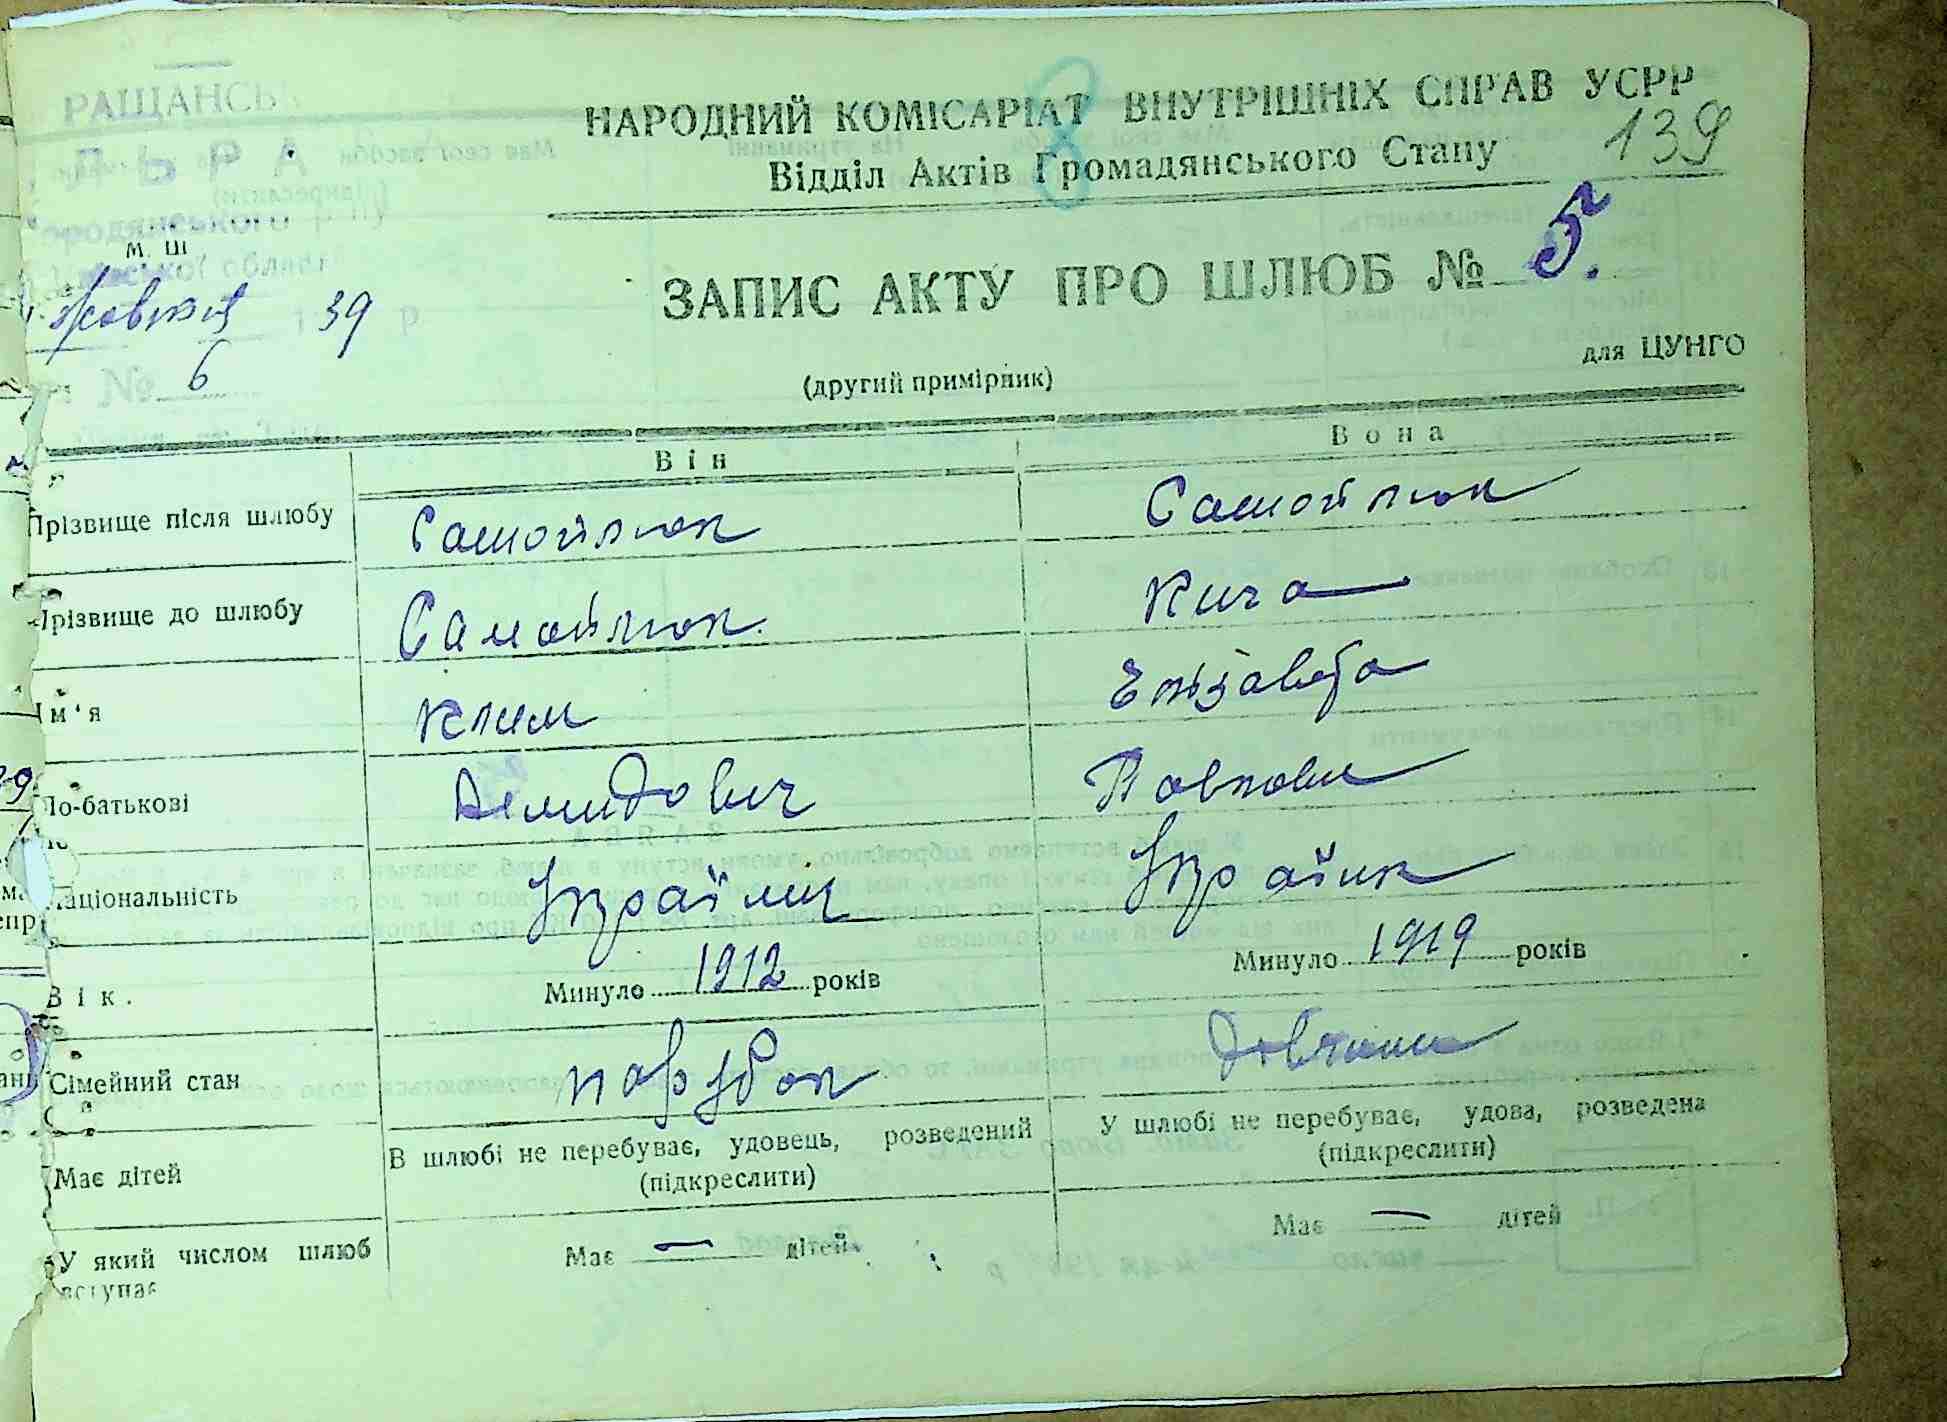 РАЩАНСЬ
ЛЬРА
ородянського р-ну
М. Ш
ської област
жовтня 39 р
№ 6
НАРОДНИЙ КОМІСАРІАТ ВНУТРІШНІХ СПРАВ УСРР
Відділ Актів Громадянського Стану
8
139
ЗАПИС АКТУ ПРО ШЛЮБ № 5.
(другий примірник)
для ЦУНГО
Він Вона
Прізвище після шлюбу Самойлюк Самойлюк
Прізвище до шлюбу Самойлюк Кича
Ім'я Клим Елізавета
По-батькові Демидович Павловн
Національність Україніц Україик
Вік. Минуло 1912 років Минуло 1919 років
Сімейний стан парубок дівчина
В шлюбі не перебуває, удовець, розведений
(підкреслити)
У шлюбі не перебуває, удова, розведена
(підкреслити)
Має дітей
Має — дітей
Має — дітей
У який числом шлюб
вступає